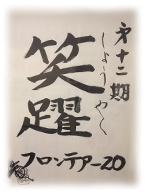 第十二期
しょうやく
笑躍
フロンテアー20